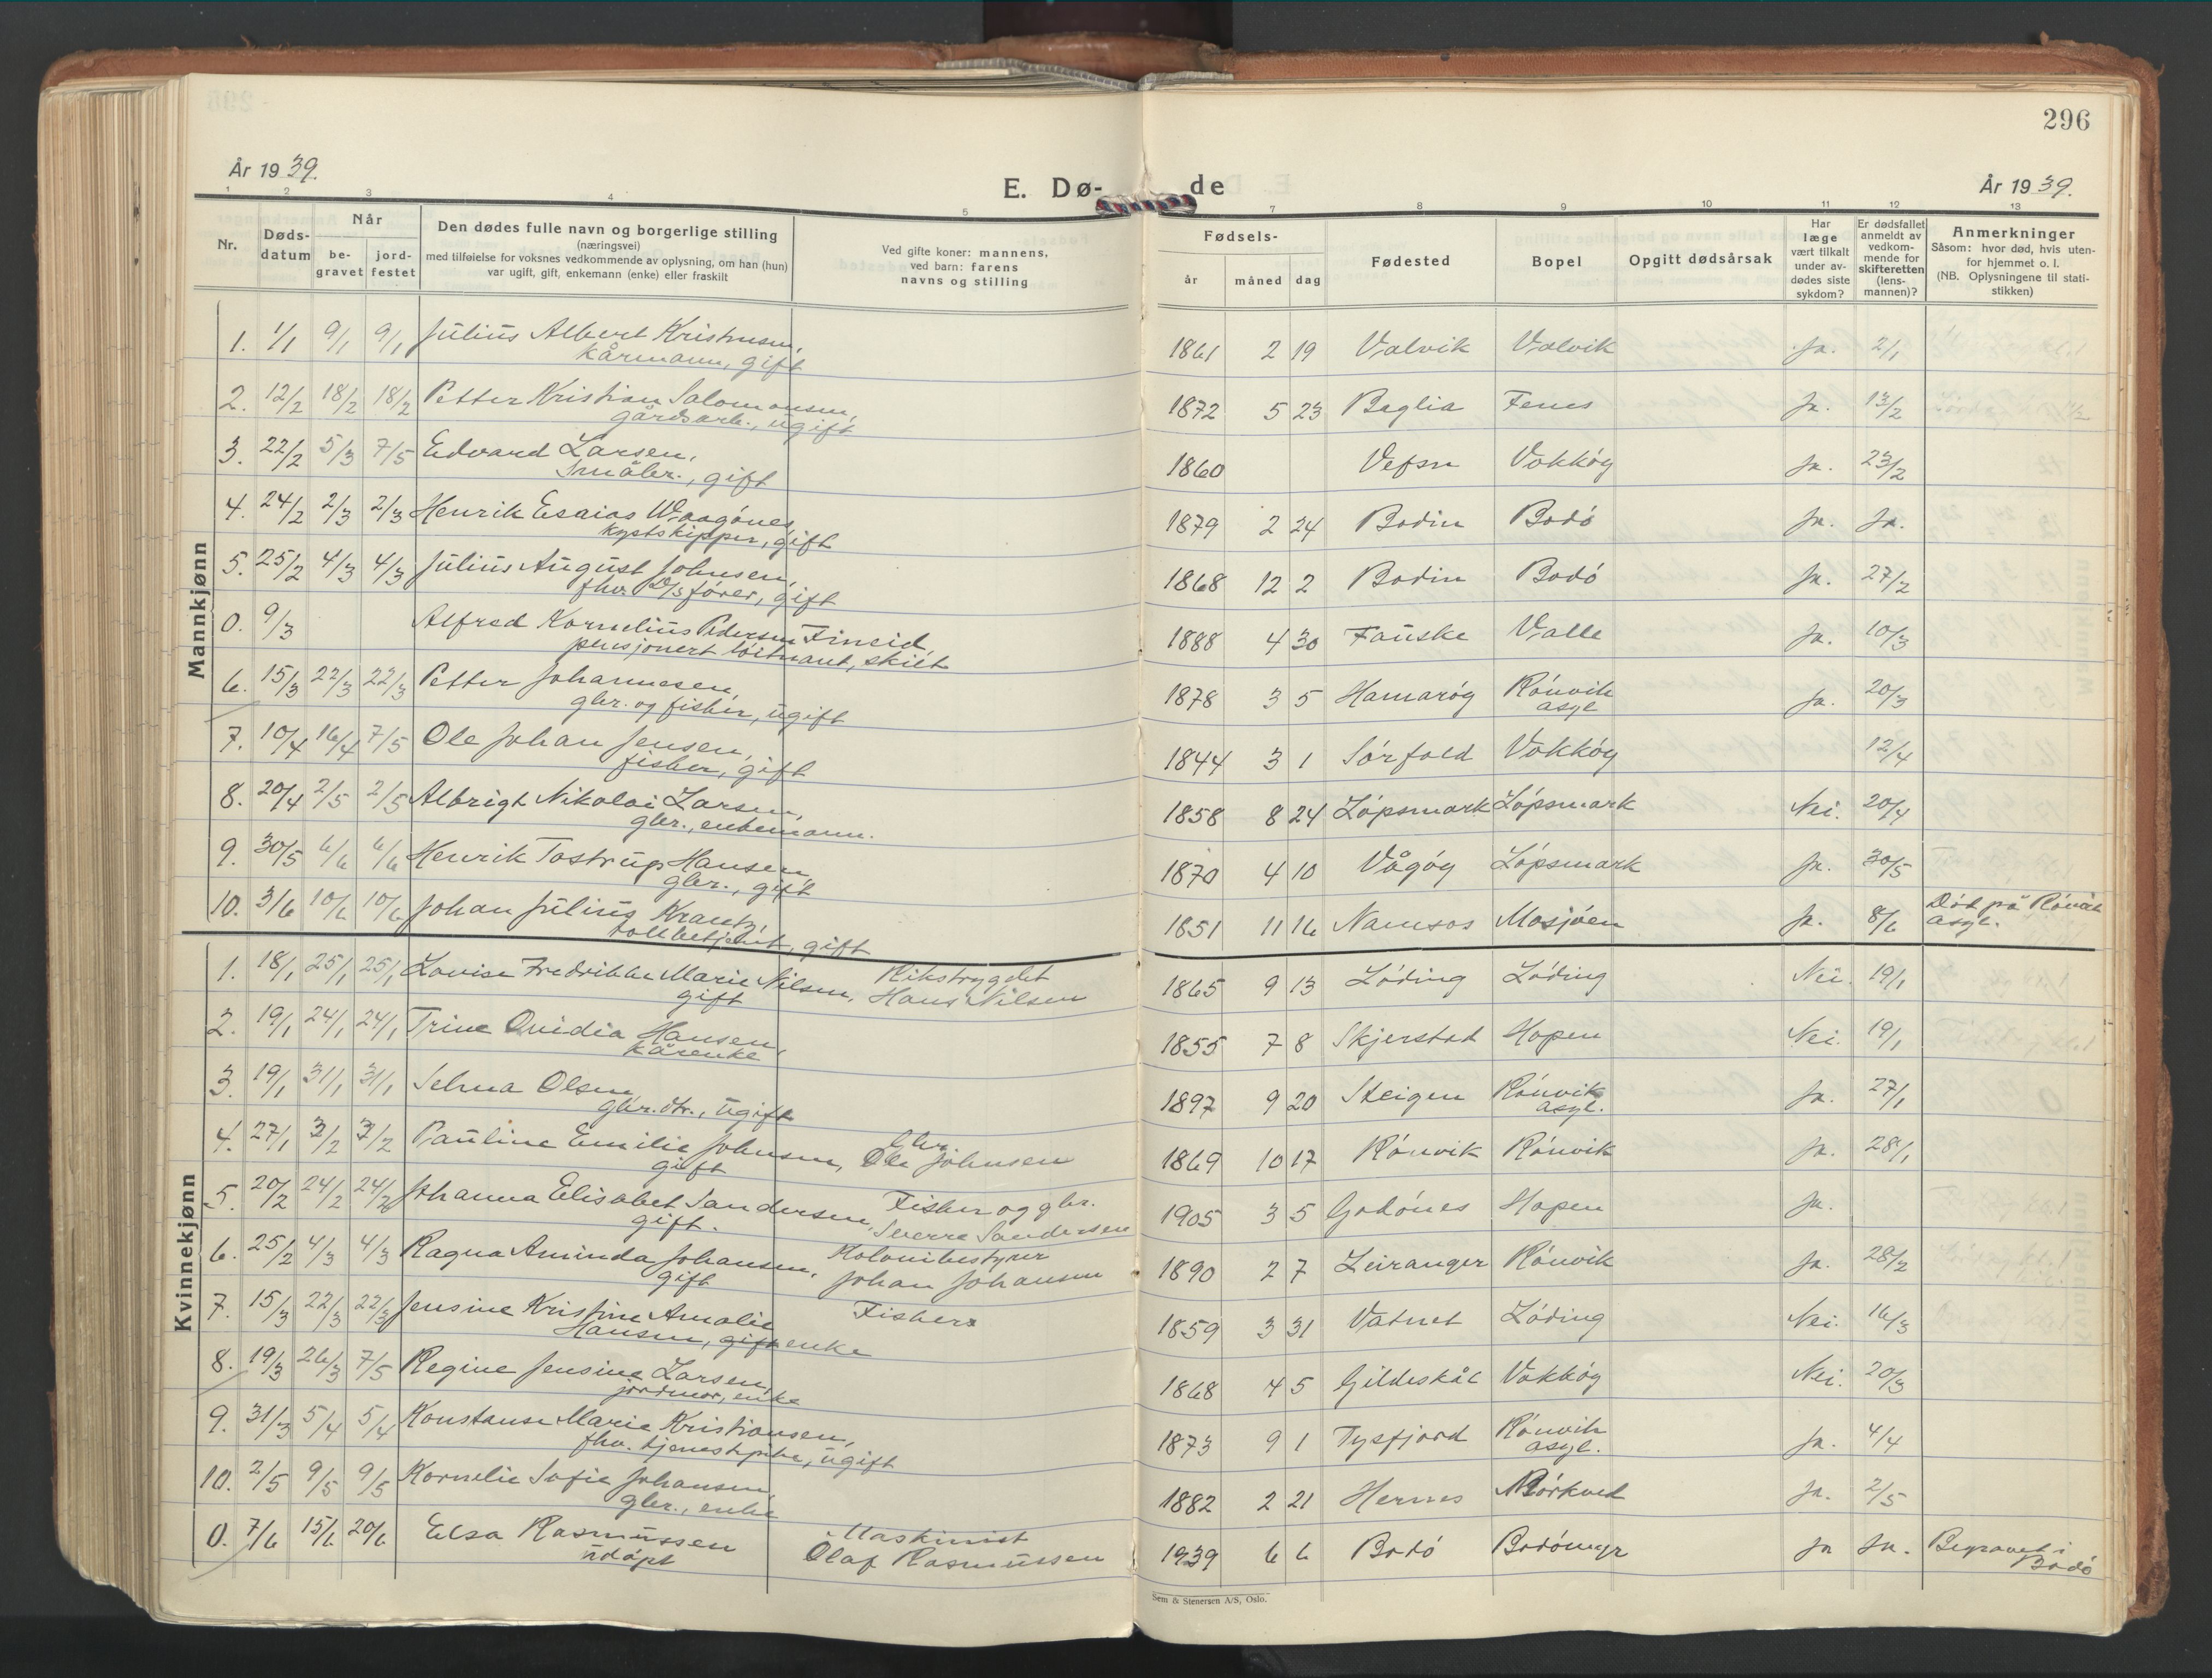 296
År 1939.
E. Dø-
de
År 1939.
1 2 3 4 5 7 8 9 10 11 12 13
Nr.
Døds-
datum
Når
be-
gravet
jord-
festet
Den dødes fulle navn og borgerlige stilling
(næringsvei)
med tilføielse for voksnes vedkommende av oplysning, om han (hun)
var ugift, gift, enkemann (enke) eller fraskilt
Ved gifte koner: mannens,
ved barn: farens
navns og stilling
Fødsels-
år måned dag
Fødested
Bopel
Opgitt dødsårsak
Har
læge
vært tilkalt
under av-
dødes siste
sykdom?
Er dødsfallet
anmeldt av
vedkom-
mende for
skifteretten
(lens-
mannen)?
Anmerkninger
Såsom: hvor død, hvis uten-
for hjemmet o. l.
(NB. Oplysningene til stati-
stikken)
Mannkjønn
1. 1/1 9/1 9/1 Julius Albert Kristensen, 1861 2 19 Valvik Valvik Ja. 2/1
kårmann, gift
2. 12/2 18/2 18/2 Petter Kristian Salomonsen, 1872 5 23 Baglia Fenes Ja. 13/2
gårdsarb., ugift
3. 22/2 5/3 7/5 Edvard Larsen, 1860 Vefsn Vokkøy Ja. 23/2
Småbr., gift
4. 24/2 2/3 2/3 Henrik Esaias Waagønes, 1879 2 24 Bodin Bodø Ja. Ja.
kystskipper, gift
5. 25/2 4/3 4/3 Julius August Johnsen, 1868 12 2 Bodin Bodø Ja. 27/2
fhv. D/S fører, gift
0. 9/3 Alfred Kornelius Pedersen Fineid, 1888 4 30 Fauske Valle Ja. 10/3
pensjonert løitnant, skilt
6. 15/3 22/3 22/3 Petter Johannesen, 1878 3 5 Hamarøy Rønvik asyl Ja. 20/3
gbr. og fisker, ugift
7. 10/4 16/4 7/5 Ole Johan Jensen, 1844 3 1 Sørfold Vokkøy 12/4
fisker, gift
8. 20/4 2/5 2/5 Albrigt Nikolai Larsen, 1858 8 24 Løpsmark Løpsmark Nei. 20/4
gbr., enkemann.
9. 30/5 6/6 6/6 Henrik Tostrup Hansen, 1870 4 10 Vågøy Løpsmark Ja. 30/5
gbr., gift
10. 3/6 10/6 10/6 Johan Julius Krantz, 1851 11 16 Namsos Mosjøen Ja. 8/6 Død på Rønvik asyl.
tollbetjent, gift
Kvinnekjønn
1. 18/1 25/1 25/1 Lovise Fredrikke Marie Nilsen, Rikstrygdet 1865 9 13 Løding Løding Nei. 19/1
gift Hans Nilsen
2. 19/1 24/1 24/1 Trine Ovidia Hansen, 1855 7 8 Skjerstad Hopen Nei. 19/1
kårenke
3. 19/1 31/1 31/1 Selma Olsen, 1897 9 20 Steigen Rønvik asyl. Ja. 27/1
gbr.dtr., ugift
4. 27/1 3/2 3/2 Pauline Emilie Johnsen, Gbr. 1869 10 17 Rønvik Rønvik Ja. 28/1
gift Ole Johnsen
5. 20/2 24/2 24/2 Johanna Elisabet Sandersen, Fisker og gbr. 1905 3 5 Godønes Hopen Ja.
gift. Sverre Sandersen
6. 25/2 4/3 4/3 Ragna Aminda Johansen, Kolonibestyrer 1890 2 7 Leiranger Rønvik Ja. 28/2
gift Johan Johansen
7. 15/3 22/3 22/3 Jensine Kristine Amalie Fisker 1859 3 31 Vatnet Løding Nei. 16/3
Hansen, gift enke
8. 19/3 26/3 7/5 Regine Jensine Larsen, 1868 4 5 Gildeskål Vokkøy Nei. 20/3
jordmor, enke
9. 31/3 5/4 5/4 Konstanse Marie Kristiansen, 1873 9 1 Tysfjord Rønvik asyl. Ja. 4/4
fhv. tjenestpike, ugift
10. 2/5 9/5 9/5 Kornelie Sofie Johansen, 1882 2 21 Hernes Mørkved Ja. 2/5
gbr., enke
0. 7/6 15/6 20/6 Elsa Rasmussen Maskinist 1939 6 6 Bodø Bodømyr Ja Ja. Begravet i Bodø
udøpt Olaf Rasmussen
Sem & Stenersen A/S, Oslo.